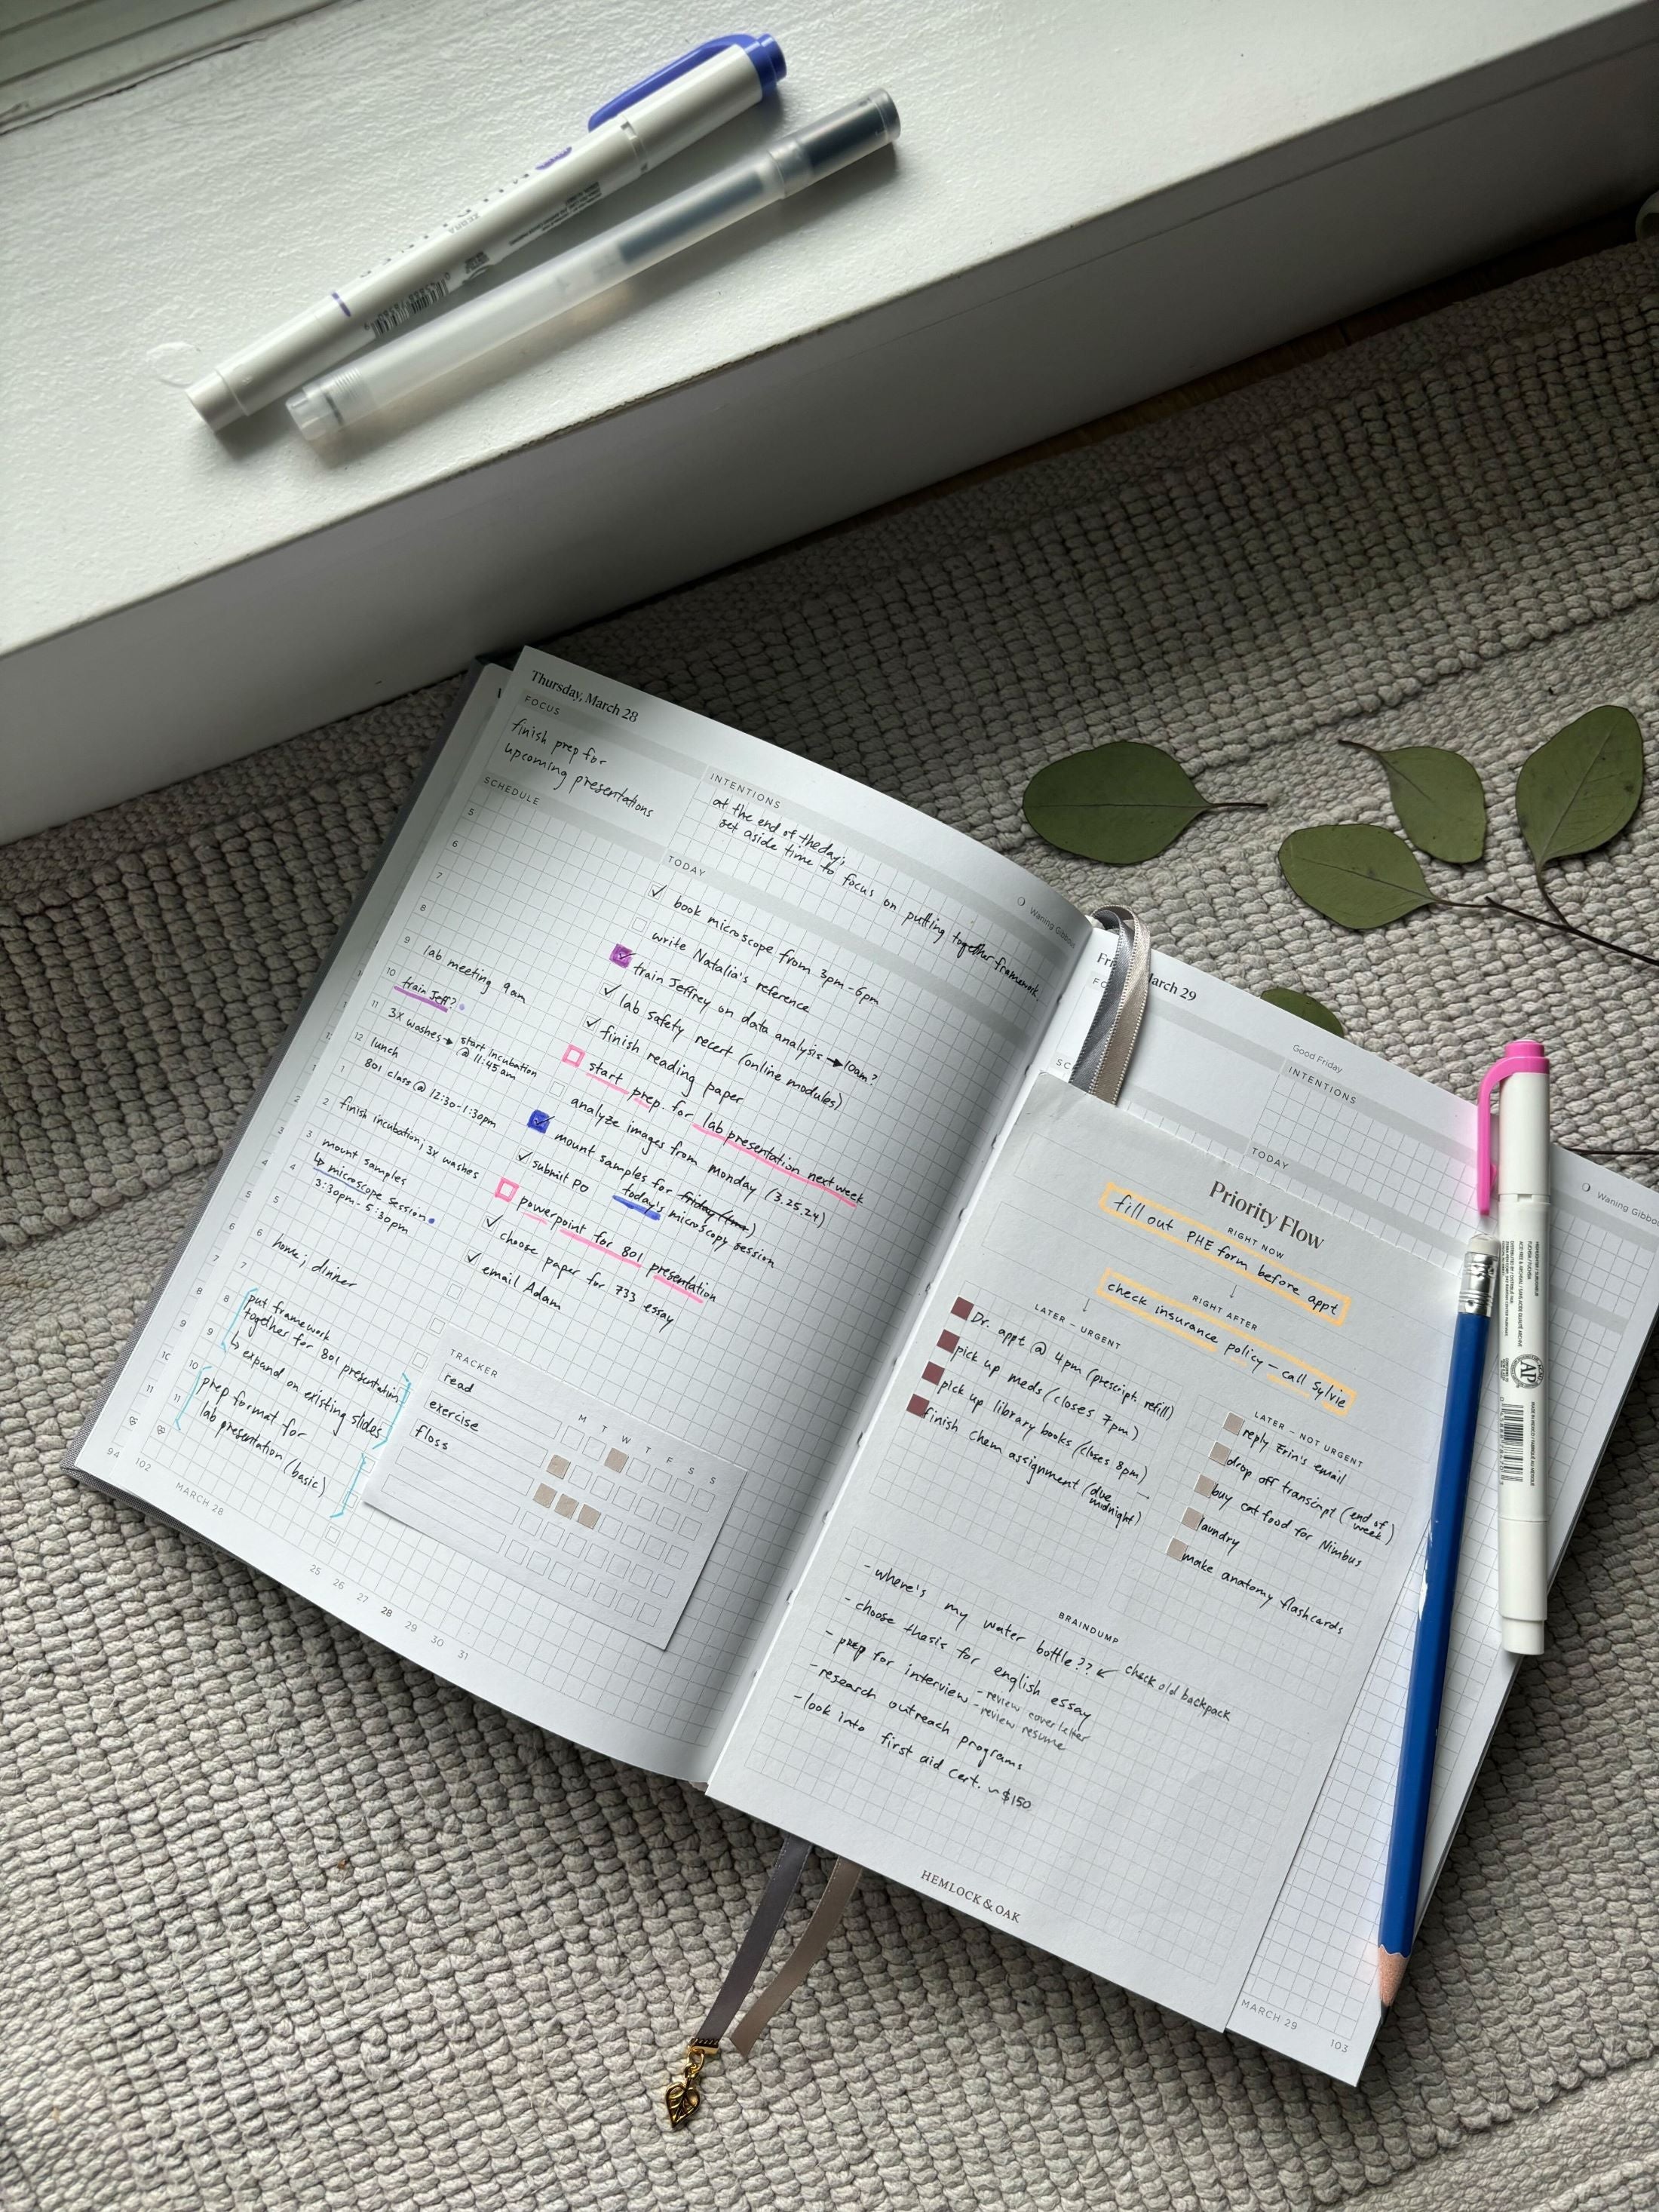 Thursday, March 28
FOCUS
finish prep for
upcoming presentations
INTENTIONS
at the end of the day,
set aside time to focus on putting together framework
Waning Gibbous
SCHEDULE
5
6
7
8
9 lab meeting 9am
10 train Jeff?
11 3x washes → start incubation
@ 11:45am
12 lunch
1 801 class @ 12:30-1:30pm
2 finish incubation; 3x washes
3 mount samples
4 ↳ microscope session
5 3:30pm-5:30pm
6 home; dinner
7
8 put framework
together for 801 presentation
9 ↳ expand on existing slides
10 prep format for
11 lab presentation (basic)
TODAY
✓ book microscope from 3pm-6pm
write Natalia's reference
✓ train Jeffrey on data analysis → 10am?
✓ lab safety recert (online modules)
✓ finish reading paper
start prep. for lab presentation next week
analyze images from Monday (3.25.24)
✓ mount samples for friday (tmw)
today's microscopy session
✓ submit PO
powerpoint for 801 presentation
✓ choose paper for 733 essay
✓ email Adam
TRACKER
M T W T F S S
read
exercise
floss
94 102
MARCH 28
25 26 27 28 29 30 31
March 29
Good Friday
INTENTIONS
TODAY
Priority Flow
RIGHT NOW
fill out PHE form before appt
↓
RIGHT AFTER
check insurance policy - call Sylvie
↓
LATER - URGENT
Dr. appt @ 4pm (prescript. refill)
pick up meds (closes 7pm)
pick up library books (closes 8pm)
finish chem assignment (due
midnight)
LATER - NOT URGENT
reply Erin's email
drop off transcript (end of
week)
buy cat food for Nimbus
laundry
make anatomy flashcards
BRAINDUMP
- where's my water bottle?? ↙ check old backpack
- choose thesis for english essay
- prep for interview - review cover letter
- review resume
- research outreach programs
- look into first aid cert. ~$150
HEMLOCK & OAK
MARCH 29
103
ZEBRA
AP